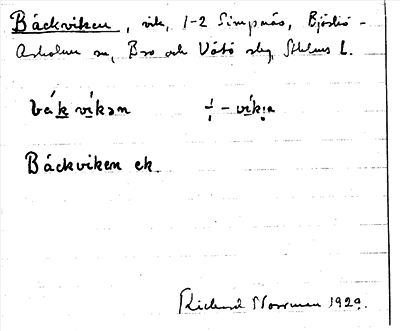 Báckviken, vik, 1-2 Simpnäs, Björkö-
Arholma sn, Bro och Vätö slg, Sthlms L.
bák víkən ⸓ - víkɪn
Báckviken ek.
Rickard Norrman 1929.